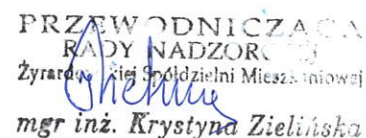 PRZEWODNICZĄCA
RADY NADZORCZEJ
Żyrardowskiej Spółdzielni Mieszkaniowej
mgr inż. Krystyna Zielińska